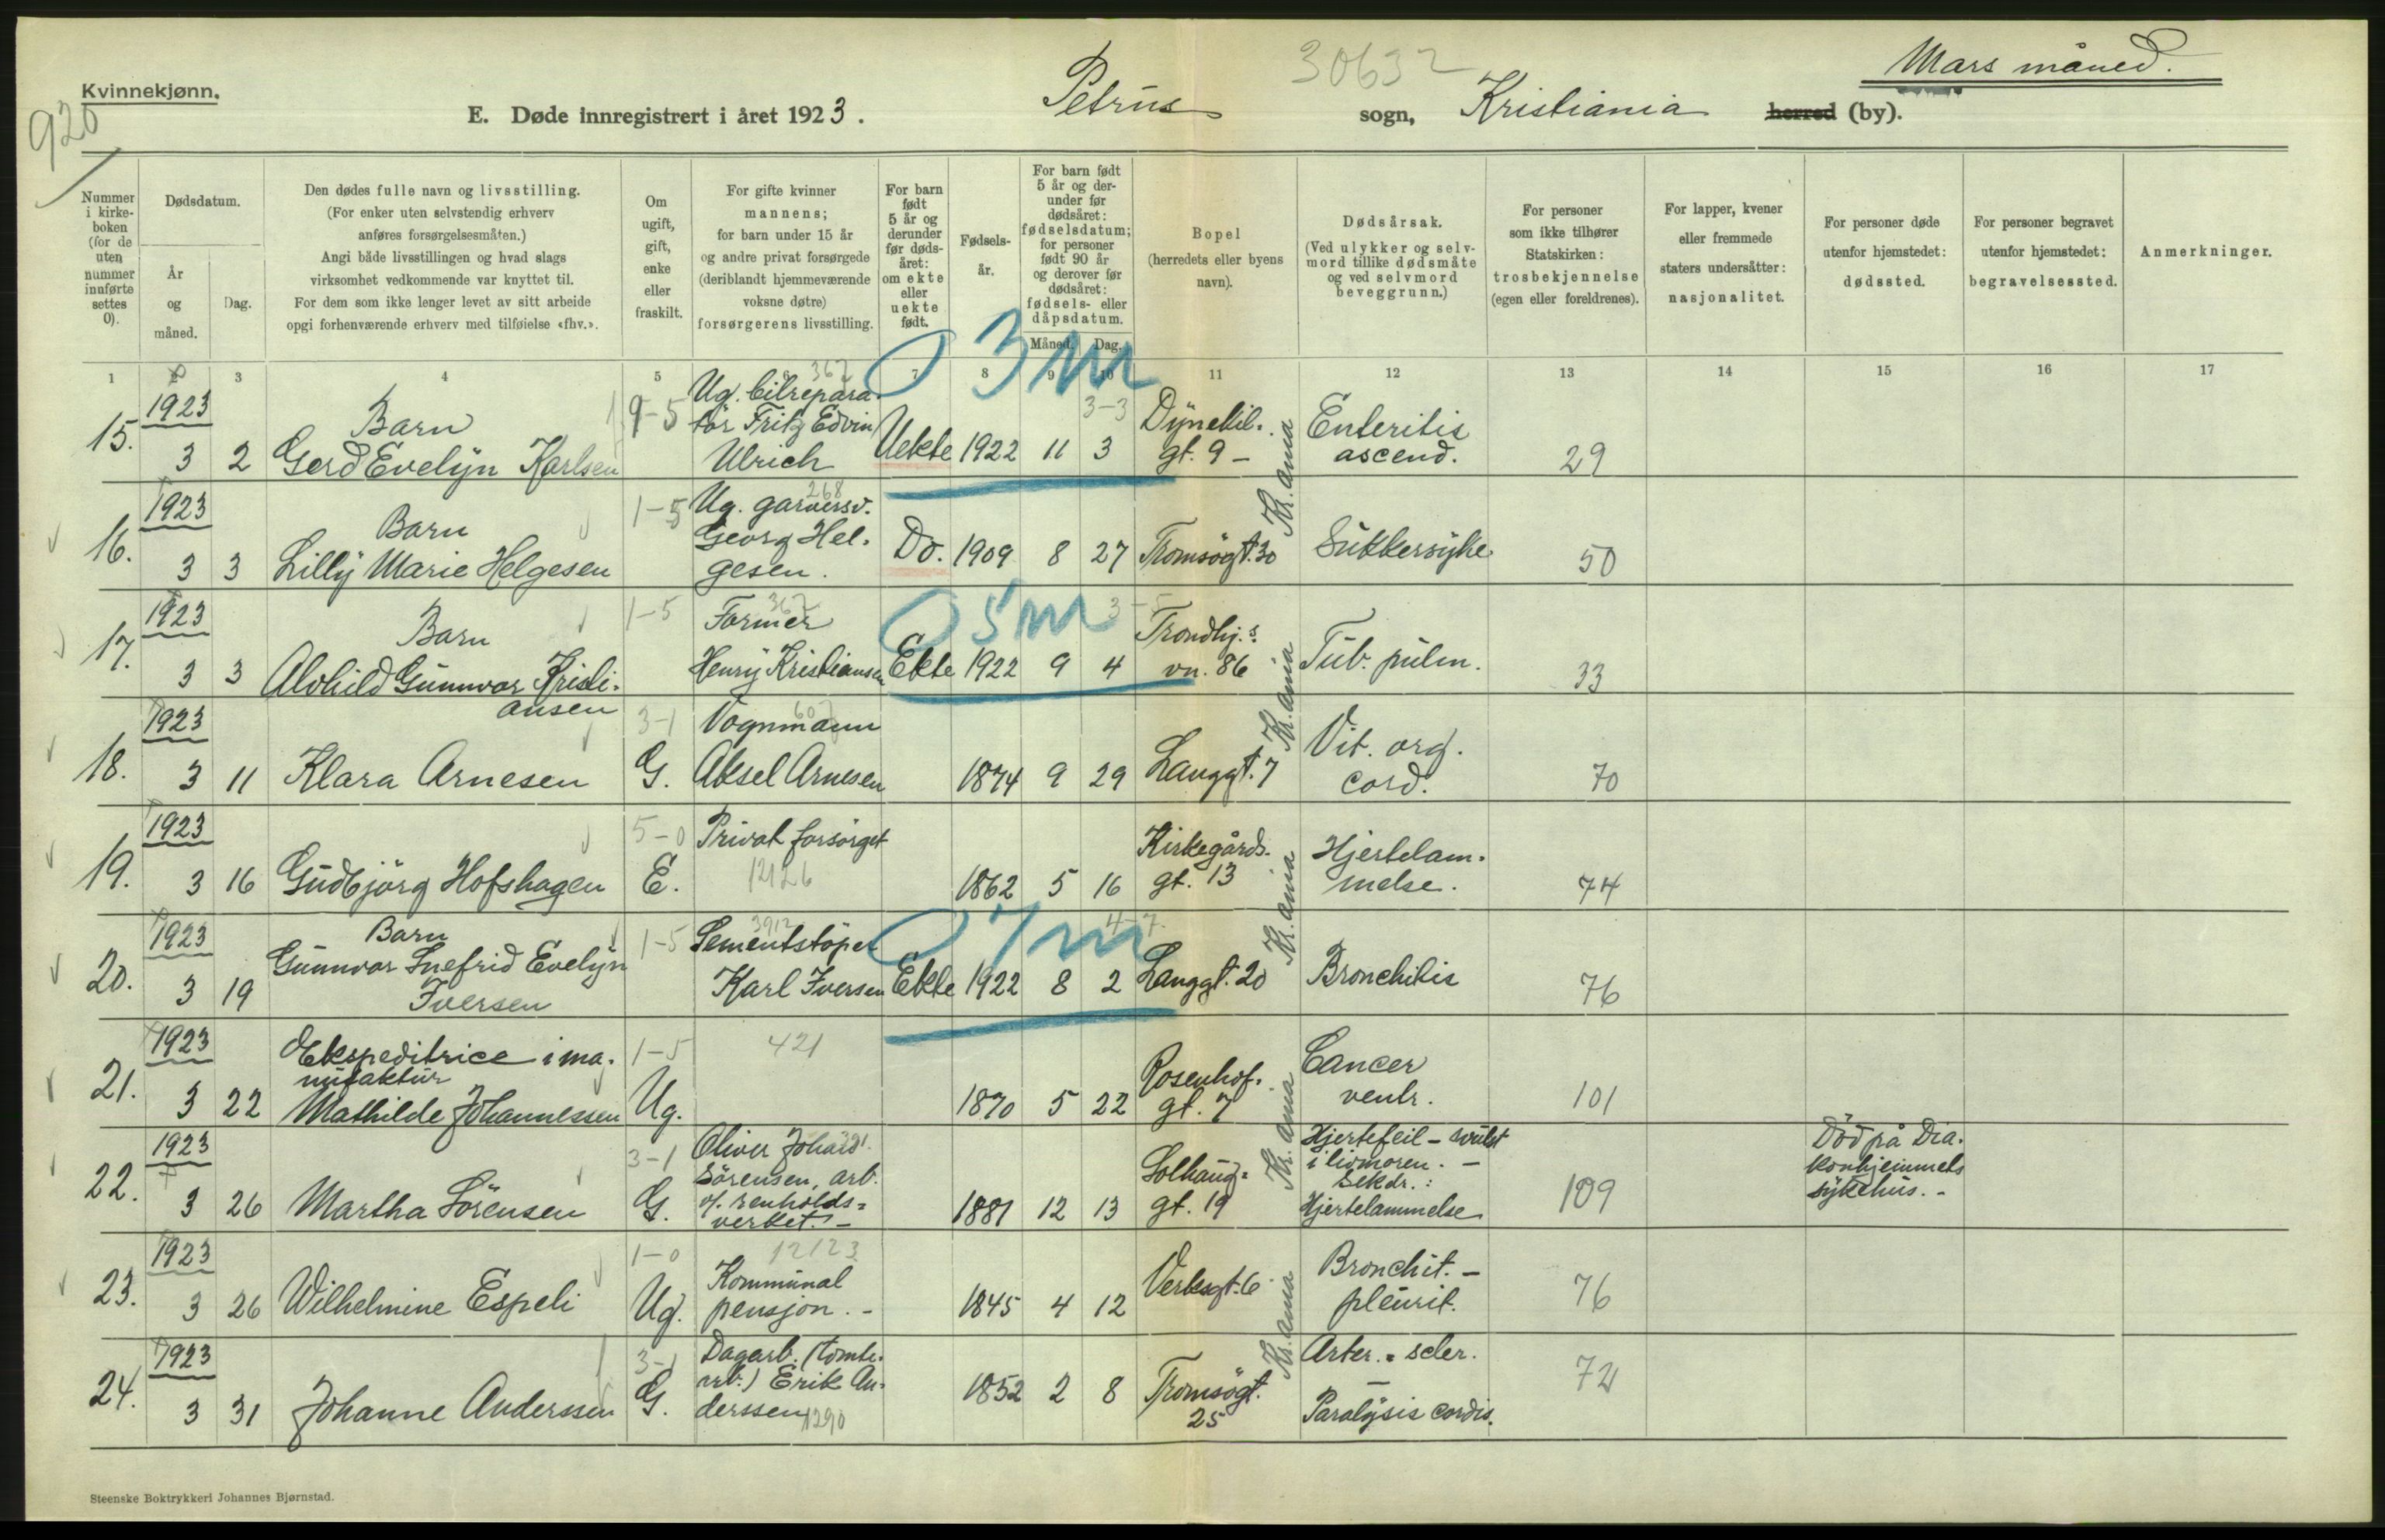 Kvinnekjønn.
920
30632
Mars måned.
E. Døde innregistrert i året 1923. Petrus sogn, Kristiania herred (by).
Nummer i kirke- boken (for de uten nummer innførte settes 0).
Dødsdatum.
År og måned.
Dag.
Den dødes fulle navn og livsstilling.
(For enker uten selvstendig erhverv
anføres forsørgelsesmåten.)
Angi både livsstillingen og hvad slags
virksomhet vedkommende var knyttet til.
For dem som ikke lenger levet av sitt arbeide
opgi forhenværende erhverv med tilføielse «fhv.».
Om ugift, gift, enke eller fraskilt.
For gifte kvinner
mannens;
for barn under 15 år
og andre privat forsørgede
(deriblandt hjemmeværende
voksne døtre)
forsørgerens livsstilling.
For barn født 5 år og derunder før døds- året: om ekte eller uekte født.
Fødsels- år.
For barn født 5 år og der- under før dødsåret: fødselsdatum; for personer født 90 år og derover før dødsåret: fødsels- eller dåpsdatum.
Måned. Dag.
Bopel
(herredets eller byens
navn).
Dødsårsak.
(Ved ulykker og selv-
mord tillike dødsmåte
og ved selvmord
beveggrunn.)
For personer
som ikke tilhører
Statskirken:
trosbekjennelse
(egen eller foreldrenes).
For lapper, kvener
eller fremmede
staters undersåtter:
nasjonalitet.
For personer døde
utenfor hjemstedet:
dødssted.
For personer begravet
utenfor hjemstedet:
begravelsessted.
Anmerkninger.
1 2 3 4 5 6 7 8 9 10 11 12 13 14 15 16 17
0 3 m
367
3-3
15. 1923 3 2 Barn
Gerd Evelyn Karlsen
9-5
Ug. bilrepara-
tør Fritz Edvin
Ulrich
Uekte 1922 11 3
Dynekil-
gt. 9 -
Kr.ania
Enteritis
ascend.
29
16. 1923 3 3 Barn
Lilly Marie Helgesen
1-5
268
Ug. garversv.
Georg Hel-
gesen.
Do. 1909 8 27 Tromsøgt. 30
Sukkersyke
50
17. 1923 3 3 Barn
Alvhild Gunnvor Kristi-
ansen
1-5
367
Former
Henry Kristiansen
0 5 m
3-5
Ekte 1922 9 4
Trondhj.s.
vn. 86
Kr.ania
Tub. pulm.
33
18. 1923 3 11 Klara Arnesen
3-1
G.
607
Vognmann
Aksel Arnesen
1874 9 29 Langgt. 7
Vit. org.
cord.
70
19. 1923 3 16 Gudbjörg Hofshagen
5-0
E.
Privat forsørget
12126
1862 5 16
Kirkegårds-
gt. 13
Kr.ania
Hjertelam-
melse.
74
20. 1923 3 19 Barn
Gunnvor Snefrid Evelyn
Iversen
1-5
3912
Sementstøper
Karl Iversen
0 7 m
4-7
Ekte 1922 8 2 Langgt. 20
Bronchitis
76
21. 1923 3 22 Ekspeditrice i ma-
nufaktur
Mathilde Johannessen
1-5
Ug.
421
1870 5 22
Rosenhof-
gt. 7
Kr.ania
Cancer
ventr.
101
22. 1923 3 26 Martha Sørensen
3-1
G.
Oliver Johan
Sørensen, arb.
v/. renholds-
verket. -
1881 12 13
Solhaug-
gt. 19
Hjertefeil - svulst
i livmoren. -
Sekdr.:
Hjertelammelse
109
Död på Dia-
konhjemmets
sykehus. -
23. 1923 3 26 Wilhelmine Espeli
1-0
Ug.
12123
Kommunal
pensjon. -
1845 4 12 Verksgt. 6
Kr.ania
Bronchit. -
pleurit.
76
24. 1923 3 31 Johanne Anderssen
3-1
G.
Dagarb. (tomte-
arb.) Erik An-
derssen
1290
1852 2 8
Tromsøgt.
25
Arter. = scler.
-
Paralysis cordis.
72
Steenske Boktrykkeri Johannes Bjørnstad.